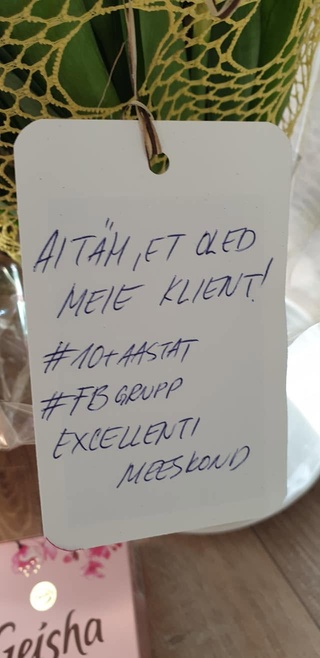 AITÄH, ET OLED
MEIE KLIENT!
#10+AASTAT
#FB GRUPP
EXCELLENTI
MEESKOND
Geisha